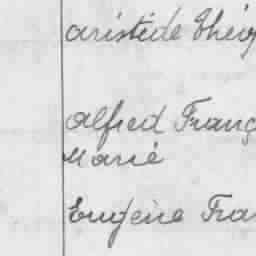 aristide Théo
alfred Franç
Marie
Eugène Fra